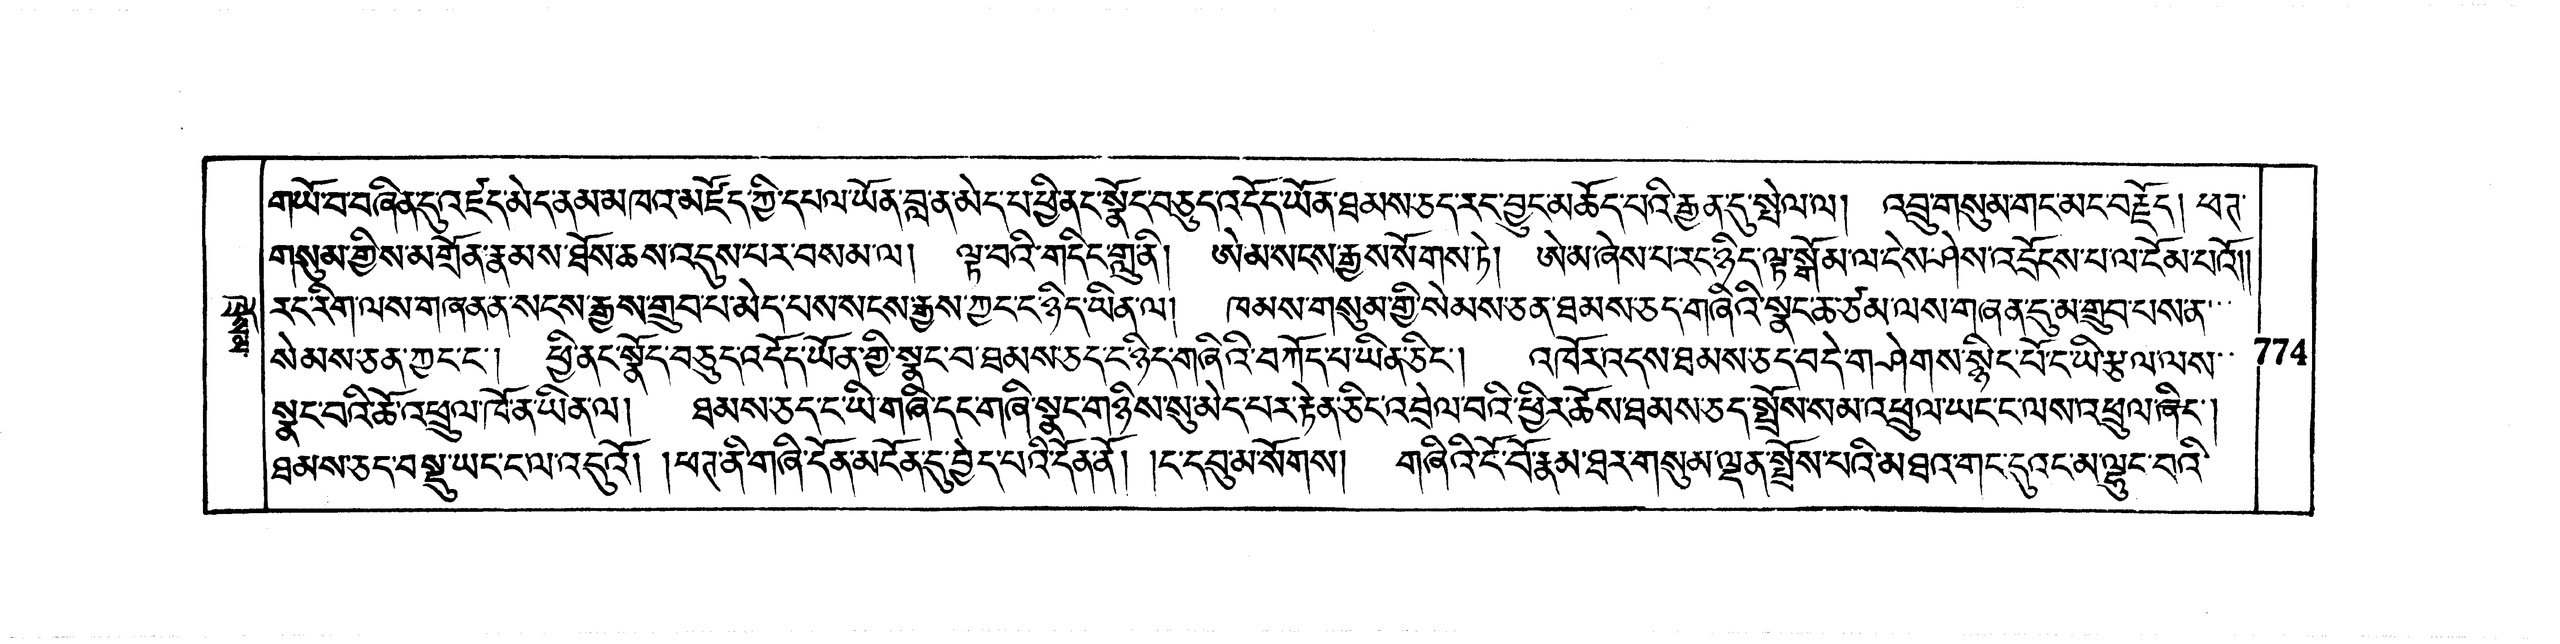 གཡོ་བ་བཞིན་དུ་འཛད་མེད་ནམ་མཁའ་མཛོད་ཀྱི་དཔལ་ཡོན་བླན་མེད་པ་ཕྱི་ནང་སྣོད་བཅུད་འདོད་ཡོན་ཐམས་ཅད་རང་བྱུང་མཆོད་པའི་རྒྱན་དུ་སྤེལ་ལ། འབྲུ་གསུམ་གང་མང་བརྗོད། ཕཊ་
གསུམ་གྱིས་མགྲོན་རྣམས་ཐོས་ཆས་འདུས་པར་བསམ་ལ། ལྟ་བའི་གདིང་གླུ་ནི། ཨེ་མ་སངས་རྒྱས་སོགས་ཏེ། ཨེ་མ་ཞེས་པ་རང་ཉིད་ལྟ་སྒོམ་ལ་ངེས་ཤེས་འདྲོངས་པ་ལ་ངོམ་པའོ༎
རང་རིག་ལས་གཞན་ན་སངས་རྒྱས་གྲུབ་པ་མེད་པས་སངས་རྒྱས་ཀྱང་ང་ཉིད་ཡིན་ལ། ཁམས་གསུམ་གྱི་སེམས་ཅན་ཐམས་ཅད་གཞིའི་སྣང་ཆ་ཙམ་ལས་གཞན་དུ་མ་གྲུབ་པས་ན་
སེམས་ཅན་ཀྱང་ང་། ཕྱི་ནང་སྣོད་བཅུད་འདོད་ཡོན་གྱི་སྣང་བ་ཐམས་ཅད་ང་ཉིད་གཞིའི་བཀོད་པ་ཡིན་ཅིང་། འཁོར་འདས་ཐམས་ཅད་བདེ་གཤེགས་སྙིང་པོ་ང་ཡི་རྩལ་ལས་
774
སྣང་བའི་ཆོ་འཕྲུལ་ཁོ་ན་ཡིན་ལ། ཐམས་ཅད་ང་ཡི་གཞི་དང་གཞི་སྣང་གཉིས་སུ་མེད་པར་རྟེན་ཅིང་འབྲེལ་བའི་ཕྱིར་ཆོས་ཐམས་ཅད་སྤྲོས་སམ་འཕྲུལ་ཡང་ང་ལས་འཕྲུལ་ཞིང་།
ཐམས་ཅད་བསྡུ་ཡང་ང་ལ་འདུའོ། །ཕཊ་ནི་གཞི་དོན་མངོན་དུ་བྱེད་པའི་དོན་ནོ། །ང་དབུམ་སོགས། གཞིའི་ངོ་བོ་རྣམ་ཐར་གསུམ་ལྡན་སྤྲོས་པའི་མཐའ་གང་དུའང་མ་ལྷུང་བའི་